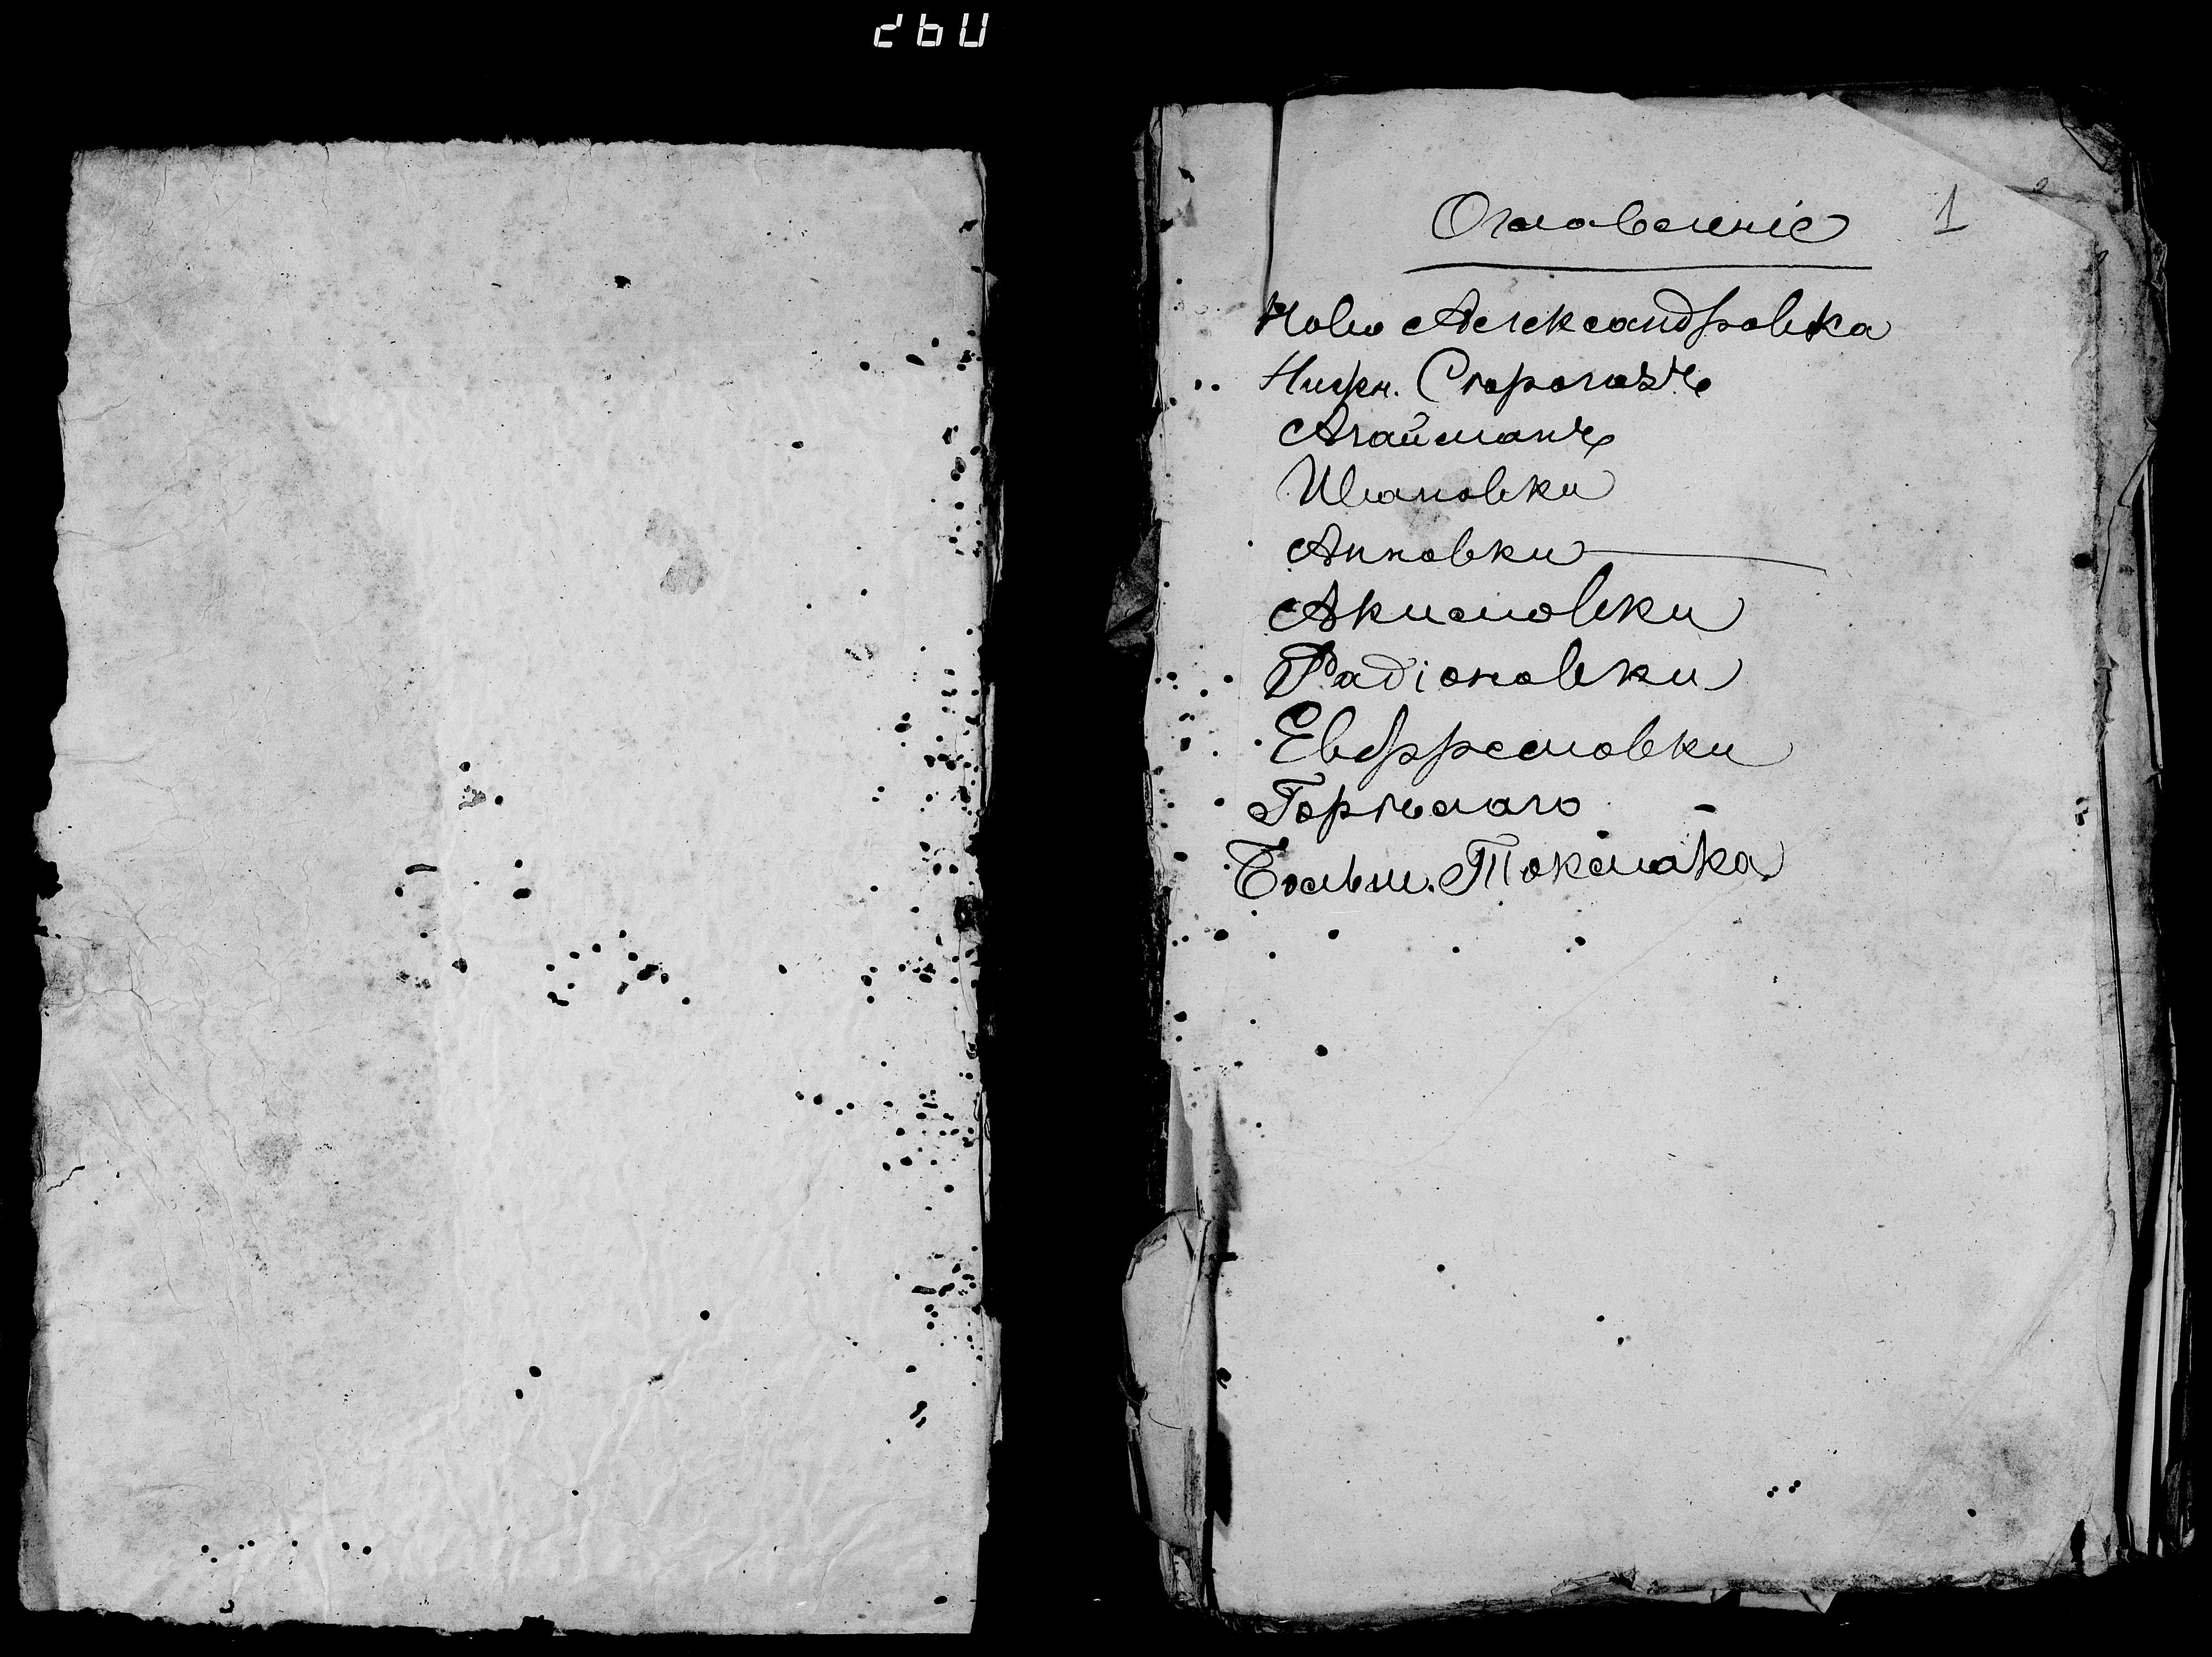 260
Оглавленіе 1
Ново Александровка
Нижн. Строгозъ
Агайманъ
Ивановки
Анновки
Акимовки
Радіоновки
Ефремовки
Горѣлаго
Больш. Токмака